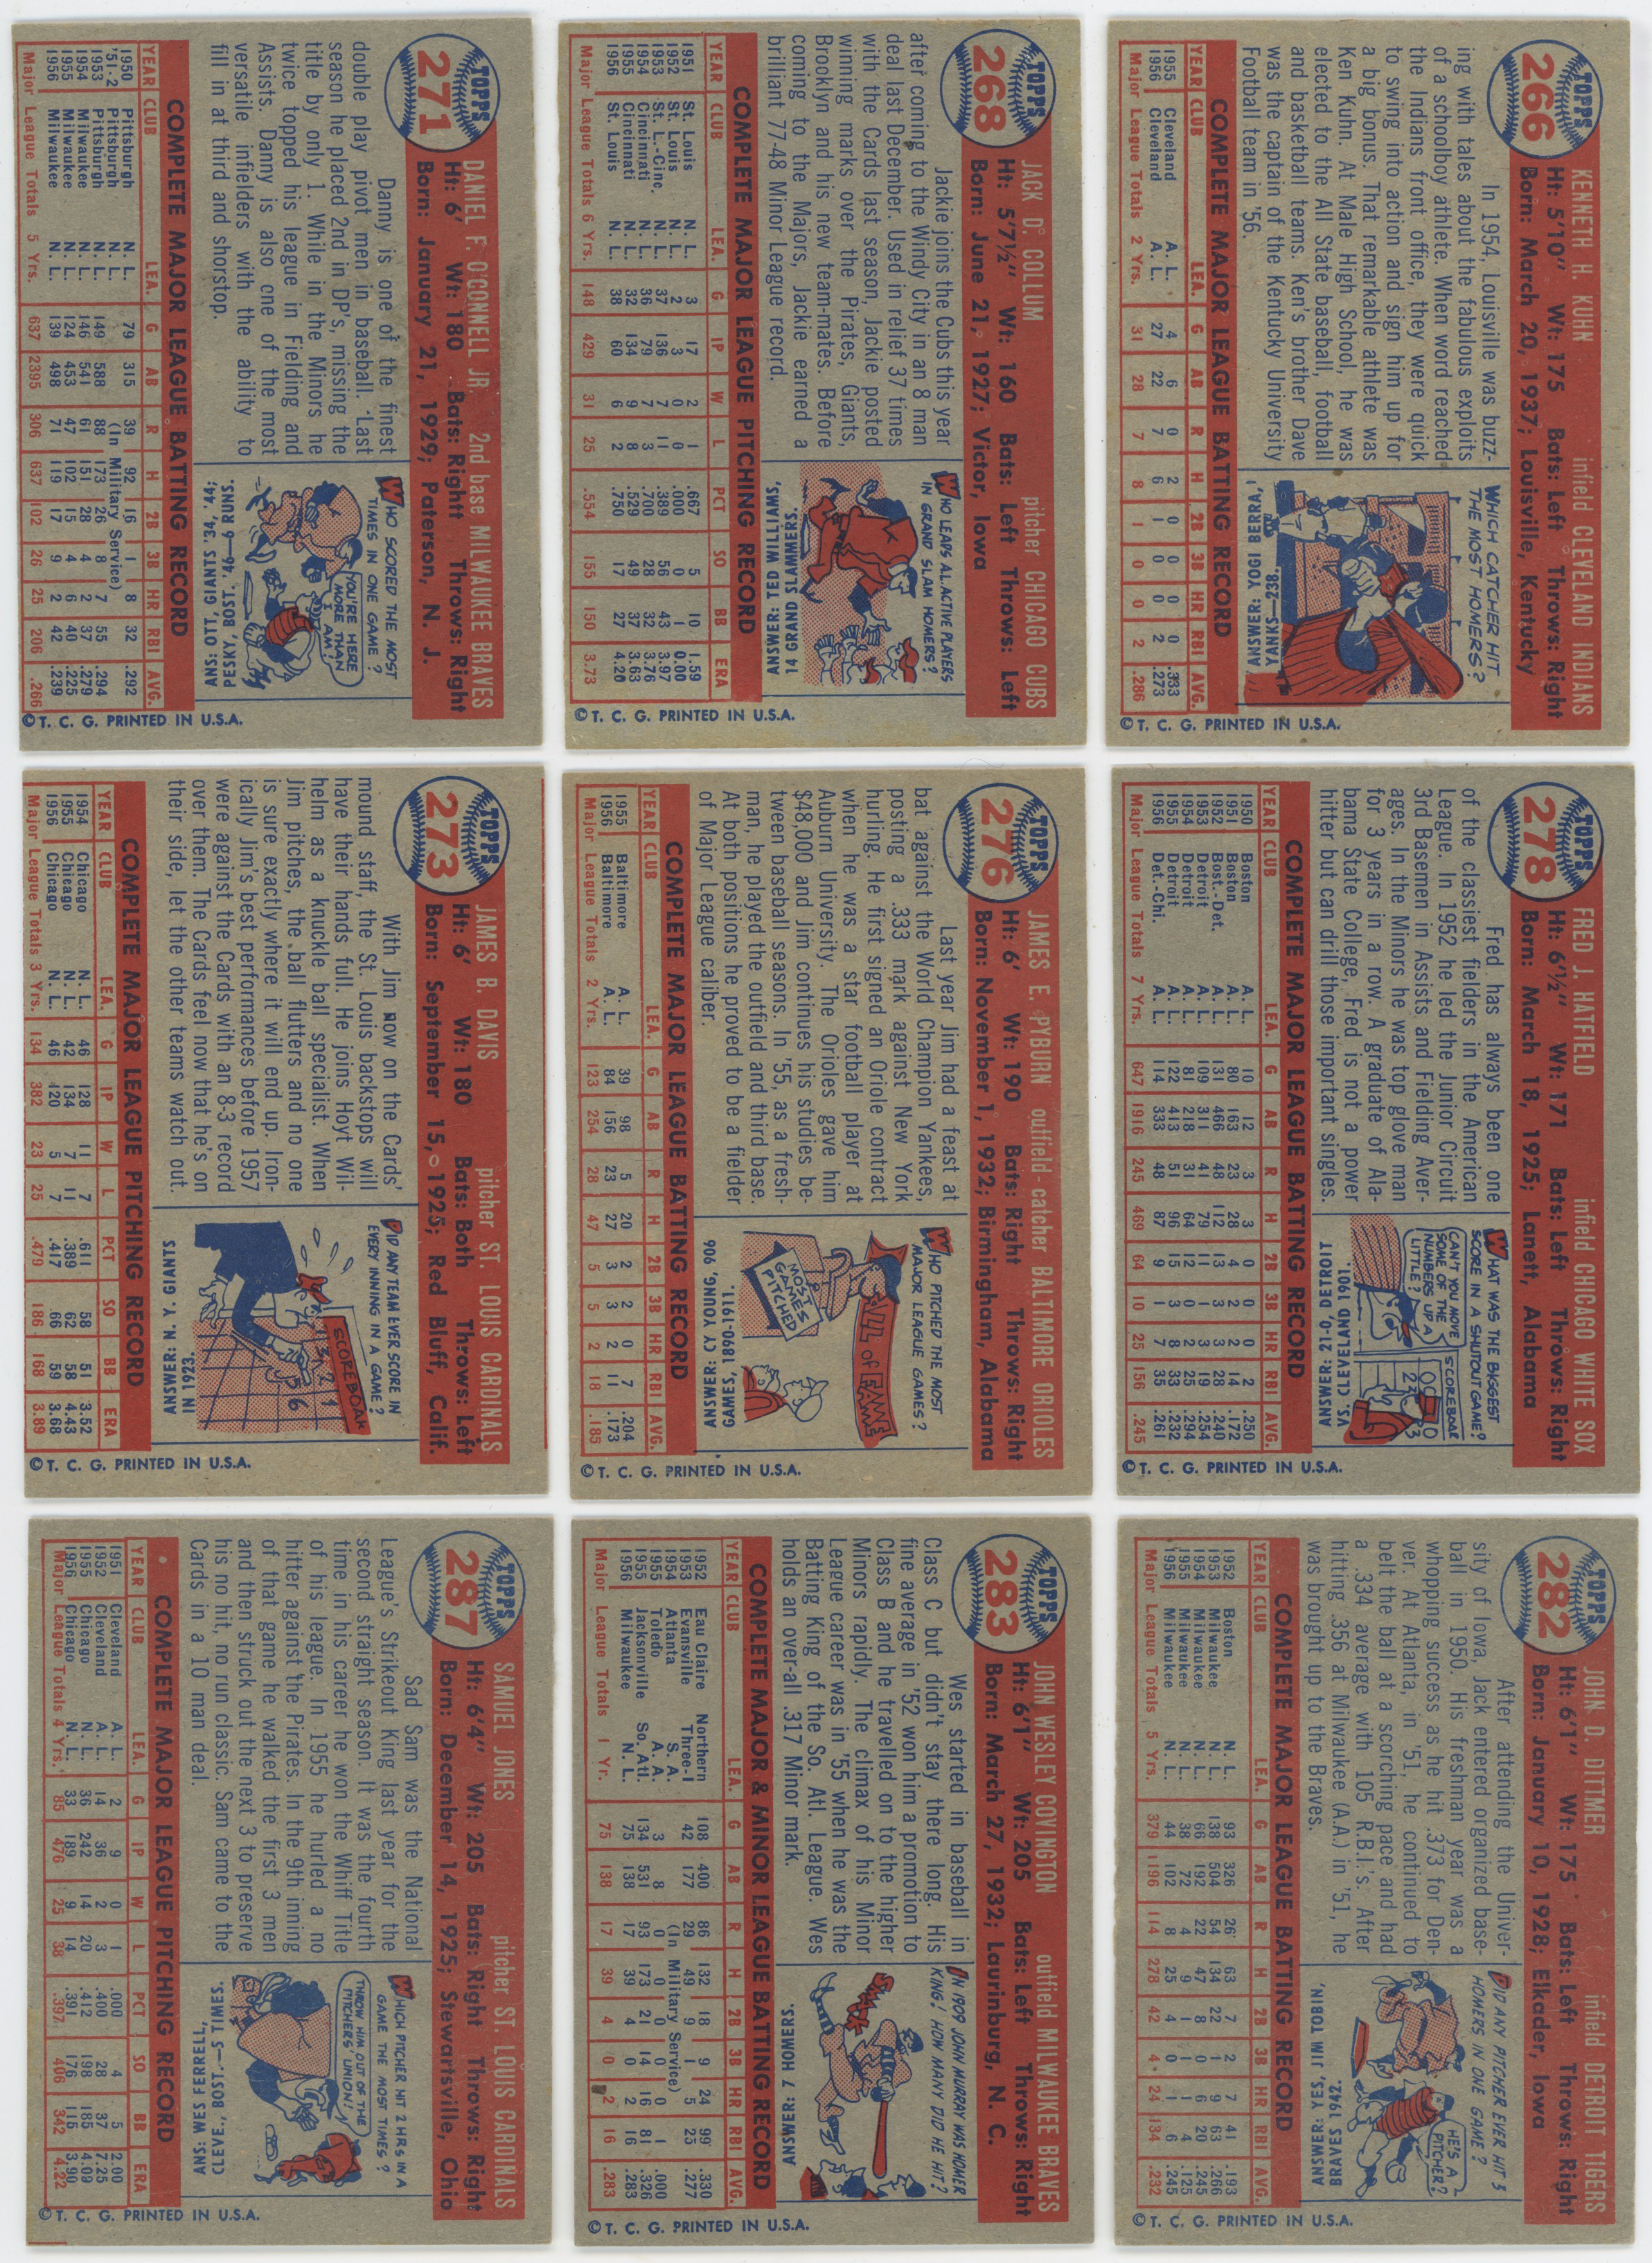 TOPPS
266
KENNETH H. KUHN infield CLEVELAND INDIANS
Ht: 5'10" Wt: 175 Bats: Left Throws: Right
Born: March 20, 1937; Louisville, Kentucky
In 1954, Louisville was buzz-
ing with tales about the fabulous exploits
of a schoolboy athlete. When word reached
the Indians front office, they were quick
to swing into action and sign him up for
a big bonus. That remarkable athlete was
Ken Kuhn. At Male High School, he was
elected to the All State baseball, football
and basketball teams. Ken's brother Dave
was the captain of the Kentucky University
Football team in '56.
WHICH CATCHER HIT
THE MOST HOMERS?
ANSWER: YOGI BERRA,
YANKS—238.
COMPLETE MAJOR LEAGUE BATTING RECORD
YEAR CLUB LEA. G AB R H 2B 3B HR RBI AVG.
1955 Cleveland A. L. 4 6 0 2 0 0 0 0 .333
1956 Cleveland A. L. 27 22 7 6 1 0 0 2 .273
Major League Totals 2 Yrs. 31 28 7 8 1 0 0 2 .286
© T. C. G. PRINTED IN U.S.A.
TOPPS
278
FRED J. HATFIELD infield CHICAGO WHITE SOX
Ht: 6'½" Wt: 171 Bats: Left Throws: Right
Born: March 18, 1925; Lanett, Alabama
Fred has always been one
of the classiest fielders in the American
League. In 1952 he led the Junior Circuit
3rd Basemen in Assists and Fielding Aver-
ages. In the Minors he was top glove man
for 3 years in a row. A graduate of Ala-
bama State College, Fred is not a power
hitter but can drill those important singles.
WHAT WAS THE BIGGEST
SCORE IN A SHUTOUT GAME?
CAN'T YOU MOVE
SOME OF THE
NUMBERS UP A
LITTLE?
SCOREBOAR
ANSWER: 21-0, DETROIT
VS. CLEVELAND 1901.
COMPLETE MAJOR LEAGUE BATTING RECORD
YEAR CLUB LEA. G AB R H 2B 3B HR RBI AVG.
1950 Boston A. L. 10 12 3 3 0 0 0 2 .250
1951 Boston A. L. 80 163 23 28 4 2 2 14 .172
1952 Bost.-Det. A. L. 131 466 48 112 13 3 2 28 .240
1953 Detroit A. L. 109 311 41 79 11 1 3 19 .254
1954 Detroit A. L. 81 218 31 64 12 0 2 25 .294
1955 Detroit A. L. 122 413 51 96 15 3 8 33 .232
1956 Det.-Chi. A. L. 114 333 48 87 9 1 7 35 .261
Major League Totals 7 Yrs. 647 1916 245 469 64 10 25 156 .245
© T. C. G. PRINTED IN U.S.A.
TOPPS
282
JOHN D. DITTMER infield DETROIT TIGERS
Ht: 6'1" Wt: 175 Bats: Left Throws: Right
Born: January 10, 1928; Elkader, Iowa
After attending the Univer-
sity of Iowa, Jack entered organized base-
ball in 1950. His freshman year was a
whopping success as he hit .373 for Den-
ver. At Atlanta, in '51, he continued to
belt the ball at a scorching pace and had
a .334 average with 105 R.B.I.'s. After
hitting .356 at Milwaukee (A.A.) in '51, he
was brought up to the Braves.
DID ANY PITCHER EVER HIT 3
HOMERS IN ONE GAME?
HE'S A
PITCHER?
ANSWER: YES, JIM TOBIN,
BRAVES 1942.
COMPLETE MAJOR LEAGUE BATTING RECORD
YEAR CLUB LEA. G AB R H 2B 3B HR RBI AVG.
1952 Boston N. L. 93 326 26 63 7 2 7 41 .193
1953 Milwaukee N. L. 138 504 54 134 22 1 9 63 .266
1954 Milwaukee N. L. 66 192 22 47 8 0 6 20 .245
1955 Milwaukee N. L. 38 72 4 9 1 1 1 4 .125
1956 Milwaukee N. L. 44 102 8 25 4 0 1 6 .245
Major League Totals 5 Yrs. 379 1196 114 278 42 4 24 134 .232
© T. C. G. PRINTED IN U.S.A.
TOPPS
268
JACK D. COLLUM pitcher CHICAGO CUBS
Ht: 5'7½" Wt: 160 Bats: Left Throws: Left
Born: June 21, 1927; Victor, Iowa
Jackie joins the Cubs this year
after coming to the Windy City in an 8 man
deal last December. Used in relief 37 times
with the Cards last season, Jackie posted
winning marks over the Pirates, Giants,
Brooklyn and his new team-mates. Before
coming to the Majors, Jackie earned a
brilliant 77-48 Minor League record.
WHO LEADS AL. ACTIVE PLAYERS
IN GRAND SLAM HOMERS?
ANSWER: TED WILLIAMS,
14 GRAND SLAMMERS.
COMPLETE MAJOR LEAGUE PITCHING RECORD
YEAR CLUB LEA. G IP W L PCT SO BB ERA
1951 St. Louis N. L. 3 17 2 1 .667 5 10 1.59
1952 St. Louis N. L. 2 3 0 0 .000 0 1 0.00
1953 St. L.-Cinc. N. L. 37 136 7 11 .389 56 43 3.97
1954 Cincinnati N. L. 36 79 7 3 .700 28 32 3.76
1955 Cincinnati N. L. 32 134 9 8 .529 49 37 3.63
1956 St. Louis N. L. 38 60 6 2 .750 17 27 4.20
Major League Totals 6 Yrs. 148 429 31 25 .554 155 150 3.73
© T. C. G. PRINTED IN U.S.A.
TOPPS
276
JAMES E. PYBURN outfield - catcher BALTIMORE ORIOLES
Ht: 6' Wt: 190 Bats: Right Throws: Right
Born: November 1, 1932; Birmingham, Alabama
Last year Jim had a feast at
bat against the World Champion Yankees,
posting a .333 mark against New York
hurling. He first signed an Oriole contract
when he was a star football player at
Auburn University. The Orioles gave him
$48,000 and Jim continues his studies be-
tween baseball seasons. In '55, as a fresh-
man, he played the outfield and third base.
At both positions he proved to be a fielder
of Major League caliber.
WHO PITCHED THE MOST
MAJOR LEAGUE GAMES?
ALL OF FAME
MOST
GAMES
PITCHED
ANSWER: CY YOUNG, 906
GAMES, 1890-1911.
COMPLETE MAJOR LEAGUE BATTING RECORD
YEAR CLUB LEA. G AB R H 2B 3B HR RBI AVG.
1955 Baltimore A. L. 39 98 5 20 2 2 0 7 .204
1956 Baltimore A. L. 84 156 23 27 3 3 2 11 .173
Major League Totals 2 Yrs. 123 254 28 47 5 5 2 18 .185
© T. C. G. PRINTED IN U.S.A.
TOPPS
283
JOHN WESLEY COVINGTON outfield MILWAUKEE BRAVES
Ht: 6'1" Wt: 205 Bats: Left Throws: Right
Born: March 27, 1932; Laurinburg, N. C.
Wes started in baseball in
Class C but didn't stay there long. His
fine average in '52 won him a promotion to
Class B and he travelled on to the higher
Minors rapidly. The climax of his Minor
League career was in '55 when he was the
Batting King of the So. Atl. League. Wes
holds an over-all .317 Minor mark.
IN 1909 JOHN MURRAY WAS HOMER
KING! HOW MANY DID HE HIT?
SWISH
ANSWER: 7 HOMERS.
COMPLETE MAJOR & MINOR LEAGUE BATTING RECORD
YEAR CLUB LEA. G AB R H 2B 3B HR RBI AVG.
1952 Eau Claire Northern 108 400 86 132 18 9 24 99 .330
1953 Evansville Three-I 42 177 29 49 9 1 5 25 .277
1954 Atlanta S. A. (In Military Service)
1955 Toledo A. A. 3 8 0 0 0 0 0 1 .000
1955 Jacksonville So. Atl. 134 531 93 173 21 14 16 81 .326
1956 Milwaukee N. L. 75 138 17 39 4 0 2 16 .283
Major League Totals 1 Yr. 75 138 17 39 4 0 2 16 .283
© T. C. G. PRINTED IN U.S.A.
TOPPS
271
DANIEL F. O'CONNELL JR. 2nd base MILWAUKEE BRAVES
Ht: 6' Wt: 180 Bats: Right Throws: Right
Born: January 21, 1929; Paterson, N. J.
Danny is one of the finest
double play pivot men in baseball. Last
season he placed 2nd in DP's, missing the
title by only 1. While in the Minors he
twice topped his league in Fielding and
Assists. Danny is also one of the most
versatile infielders with the ability to
fill in at third and shorstop.
WHO SCORED THE MOST
TIMES IN ONE GAME?
YOU'RE HERE
MORE THAN
I AM!
ANS: OTT, GIANTS '34, '44;
PESKY, BOST. '46—6 RUNS.
COMPLETE MAJOR LEAGUE BATTING RECORD
YEAR CLUB LEA. G AB R H 2B 3B HR RBI AVG.
1950 Pittsburgh N. L. 79 315 39 92 16 1 8 32 .292
'51-2 Pittsburgh N. L. (In Military Service)
1953 Pittsburgh N. L. 149 588 88 173 26 8 7 55 .294
1954 Milwaukee N. L. 146 541 61 151 28 4 2 37 .279
1955 Milwaukee N. L. 124 453 47 102 15 4 6 40 .225
1956 Milwaukee N. L. 139 498 71 119 17 9 2 42 .239
Major League Totals 5 Yrs. 637 2395 306 637 102 26 25 206 .266
© T. C. G. PRINTED IN U.S.A.
TOPPS
273
JAMES B. DAVIS pitcher ST. LOUIS CARDINALS
Ht: 6' Wt: 180 Bats: Both Throws: Left
Born: September 15, 1925; Red Bluff, Calif.
With Jim now on the Cards'
mound staff, the St. Louis backstops will
have their hands full. He joins Hoyt Wil-
helm as a knuckle ball specialist. When
Jim pitches, the ball flutters and no one
is sure exactly where it will end up. Iron-
ically Jim's best performances before 1957
were against the Cards with an 8-3 record
over them. The Cards feel now that he's on
their side, let the other teams watch out.
DID ANY TEAM EVER SCORE IN
EVERY INNING IN A GAME?
SCOREBOAR
ANSWER: N. Y. GIANTS
IN 1923.
COMPLETE MAJOR LEAGUE PITCHING RECORD
YEAR CLUB LEA. G IP W L PCT SO BB ERA
1954 Chicago N. L. 46 128 11 7 .611 58 51 3.52
1955 Chicago N. L. 42 134 7 11 .389 62 58 4.43
1956 Chicago N. L. 46 120 5 7 .417 66 59 3.68
Major League Totals 3 Yrs. 134 382 23 25 .479 186 168 3.89
© T. C. G. PRINTED IN U.S.A.
TOPPS
287
SAMUEL JONES pitcher ST. LOUIS CARDINALS
Ht: 6'4" Wt: 205 Bats: Right Throws: Right
Born: December 14, 1925; Stewartsville, Ohio
Sad Sam was the National
League's Strikeout King last year for the
second straight season. It was the fourth
time in his career he won the Whiff Title
of his league. In 1955 he hurled a no
hitter against the Pirates. In the 9th inning
of that game he walked the first 3 men
and then struck out the next 3 to preserve
his no hit, no run classic. Sam came to the
Cards in a 10 man deal.
WHICH PITCHER HIT 2 HRS IN A
GAME THE MOST TIMES?
THROW HIM OUT OF THE
PITCHERS' UNION!
ANS: WES FERRELL,
CLEVE., BOST.—5 TIMES.
COMPLETE MAJOR LEAGUE PITCHING RECORD
YEAR CLUB LEA. G IP W L PCT SO BB ERA
1951 Cleveland A. L. 2 9 0 1 .000 4 5 2.00
1952 Cleveland A. L. 14 36 2 3 .400 28 37 7.25
1955 Chicago N. L. 36 242 14 20 .412 198 185 4.09
1956 Chicago N. L. 33 189 9 14 .391 176 115 3.90
Major League Totals 4 Yrs. 85 476 25 38 .397 406 342 4.22
© T. C. G. PRINTED IN U.S.A.